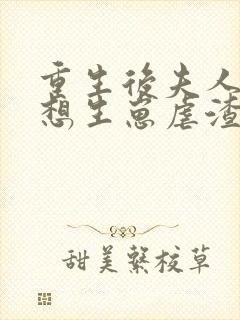 重生后夫人
想生崽虐渣
甜美系校草